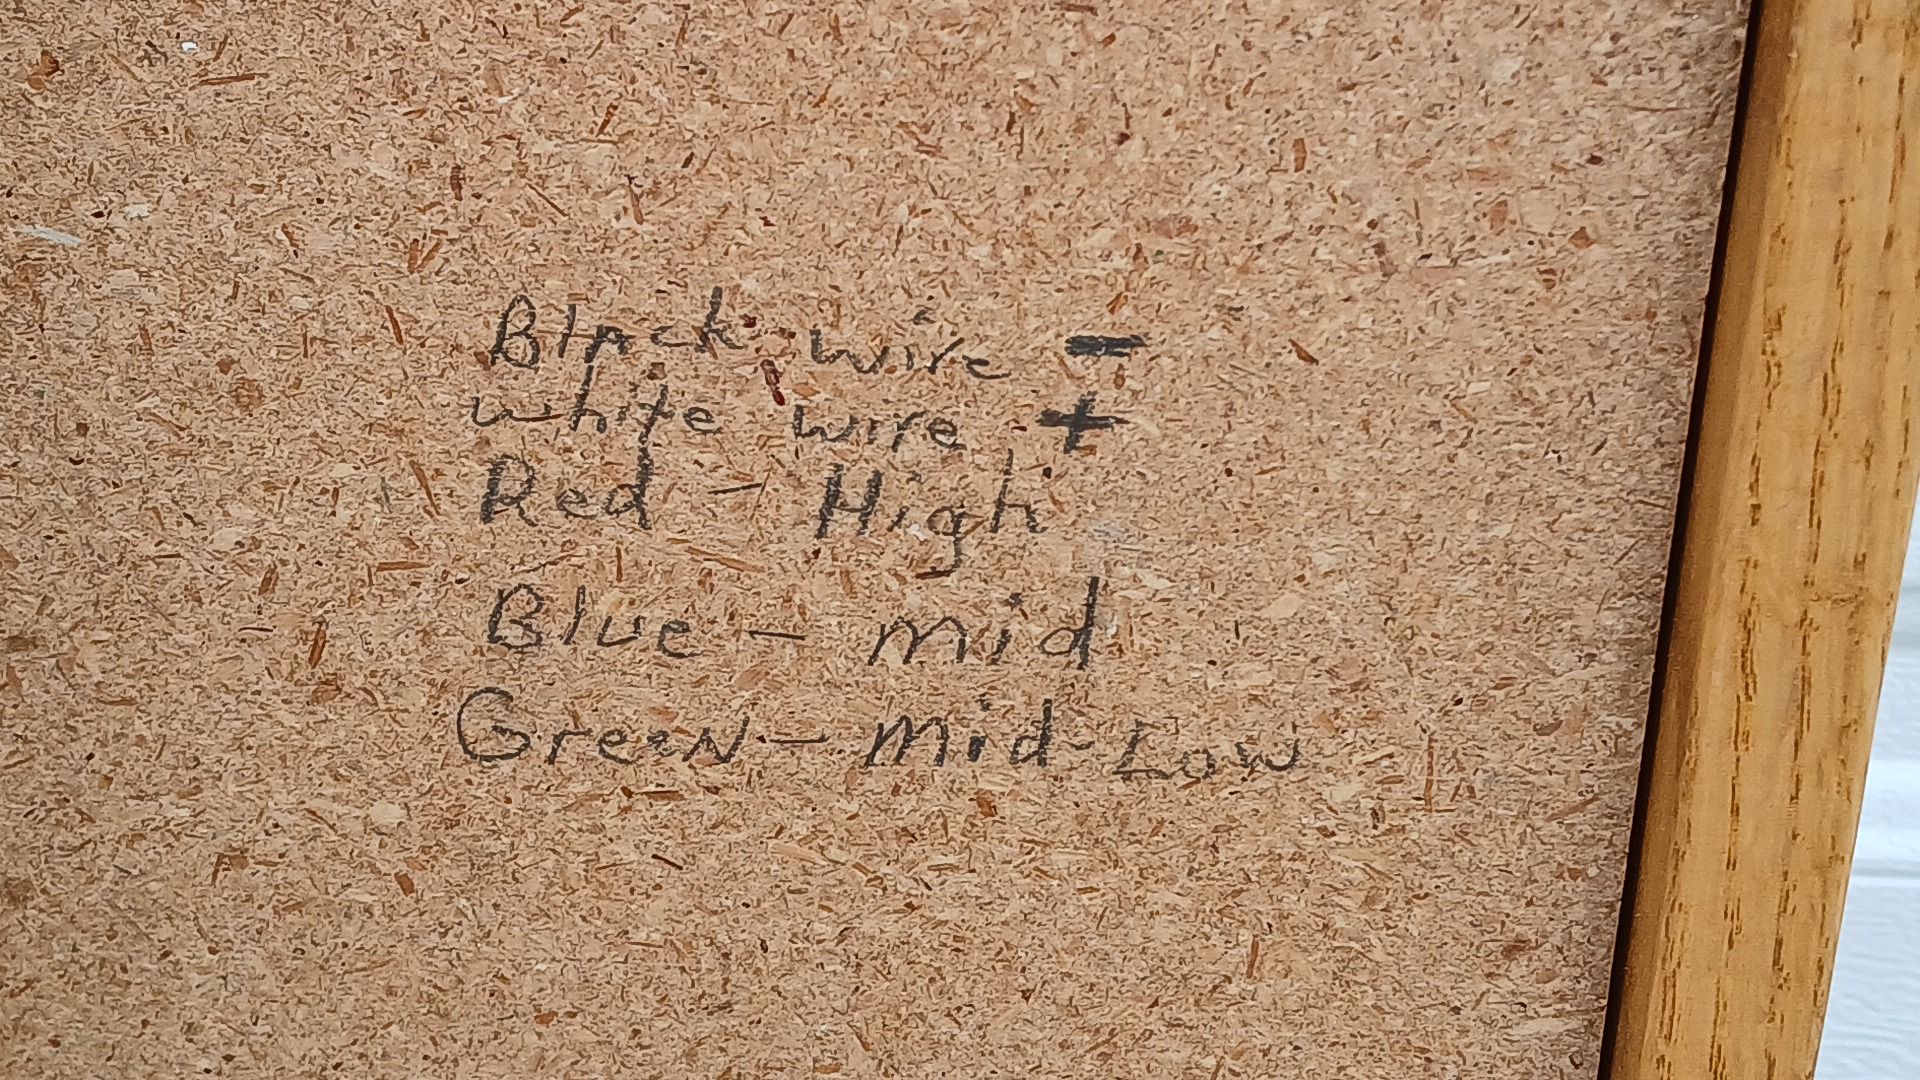 Black wire -
white wire +
Red - High
Blue - mid
Green - mid-Low